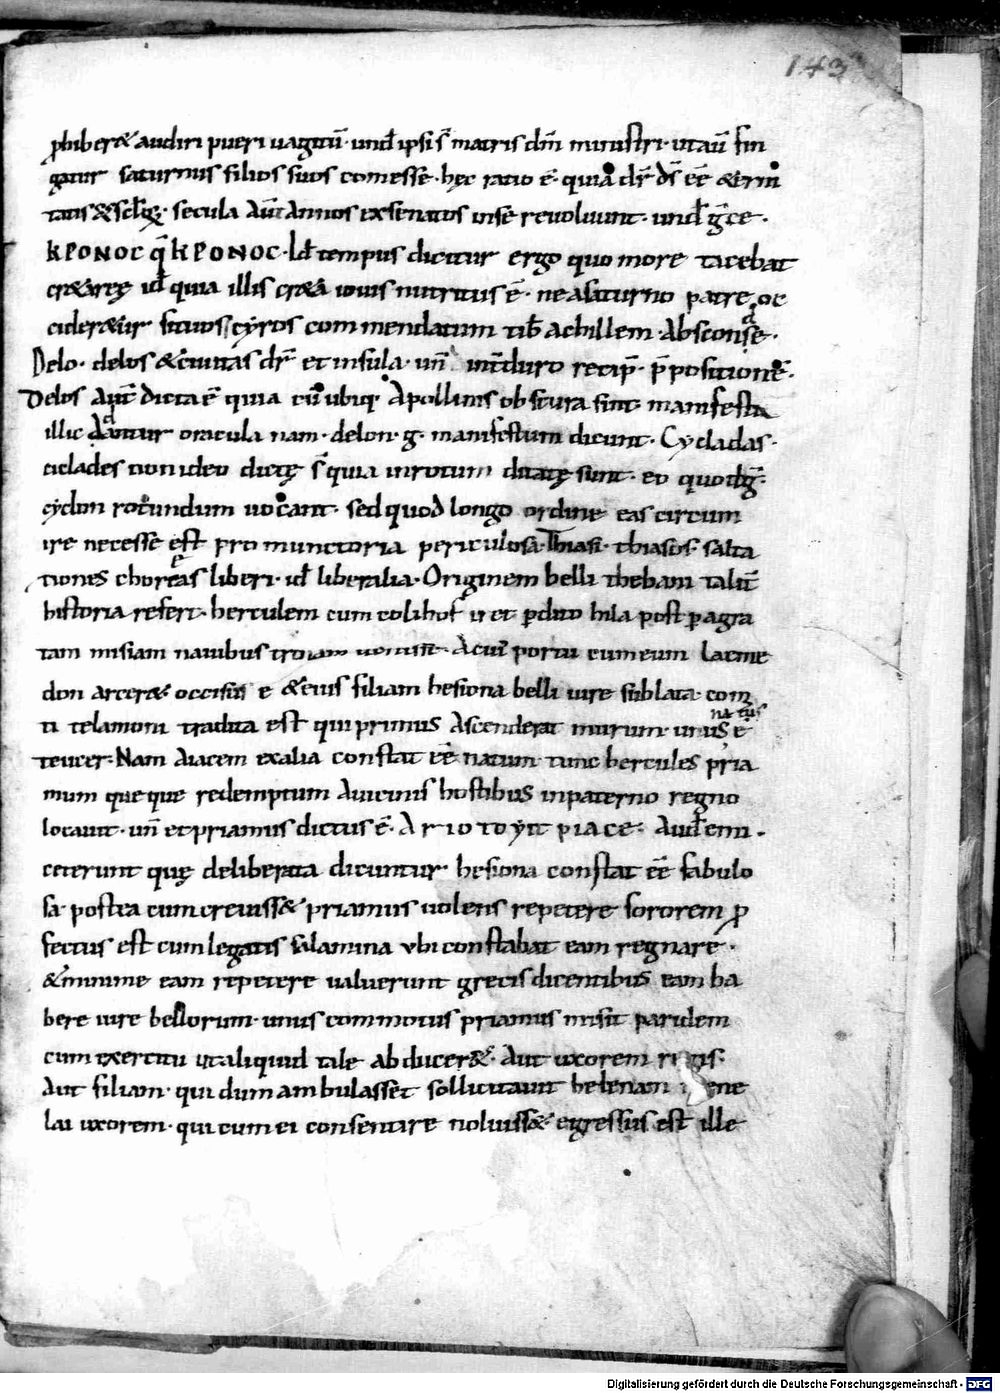 143
ꝓhiber& audiri pueri uagitū· und̄ ipsi s̄ matris dm̄ ministri· ut aū fin
gatur saturnus filios suos comesse· hęc ratio ē· quia dr̄ ds̄ eē &erni
tatis & sclōꝝ· secula aūt annos ex se natos in se reuoluunt· und̄ gͣce·
KPONOC q̄ KPONOC· id̄ tempus dicitur ergo quo more tacebat
cr&a reę id̄ quia illis cr&a iouis nutritus ē· ne a saturno patre oc
cider&ur si tuos scyros commendatum tib̄ achillem· Absconse·
Delo· delos & ciuitas dr̄ et insula· un̄ interduro recip̄· p̄positionē·
Delos aut̄ dicta ē quia cū ubiq; Apollinis obscura sint manifesta
illic dantur oracula nam· delon· g· manifestum dicunt· Cycladas·
ciclades non ideo dictę s̄ quia in rotum ditatę sunt· eo quod ḡ·
cyclon rotundum uocant· sed quod longo ordine eas circum
ire necesse est promunctoria periculosa· Thiasi· thiasos· salta
tiones choreas liberi· id̄ liberalia· Originem belli thebani talē
historia refert· herculem cum colihos iret ꝑdito hila post ꝑagra
tam misiam nauibus troiam uenisse· A cui portu cum eum laome
don arcer& occisus ē & eius filiam hesiona belli iure sublata· com
ti telamoni tradita est qui primus ascenderat murum· unus ē
natus
teucer· Nam aiacem ex alia constat eē natum tunc hercules pria
mum queque redemptum a uicinis hostibus in paterno regno
locauit· un̄ et priamus dictus ē· Arioto yn piace· Aud̄ eni·
ceterunt quę deliberata dicuntur· hesiona constat eē fabulo
sa· postea cum creuiss& priamus uolens repetere sororem ꝓ
fectus est cum legatis salamina ubi constabat eam regnare·
& minime eam repetere ualuerunt grecis dicentibus eam ha
bere iure bellorum· unus commotus priamus misit paridem
cum exercitu ut aliquid tale abducer&· Aut uxorem regis·
Aut filiam· qui dum ambulasset sollicitauit helenam mene
lai uxorem· qui cum ei consentire noluiss& egressus est ille
Digitalisierung gefördert durch die Deutsche Forschungsgemeinschaft - DFG